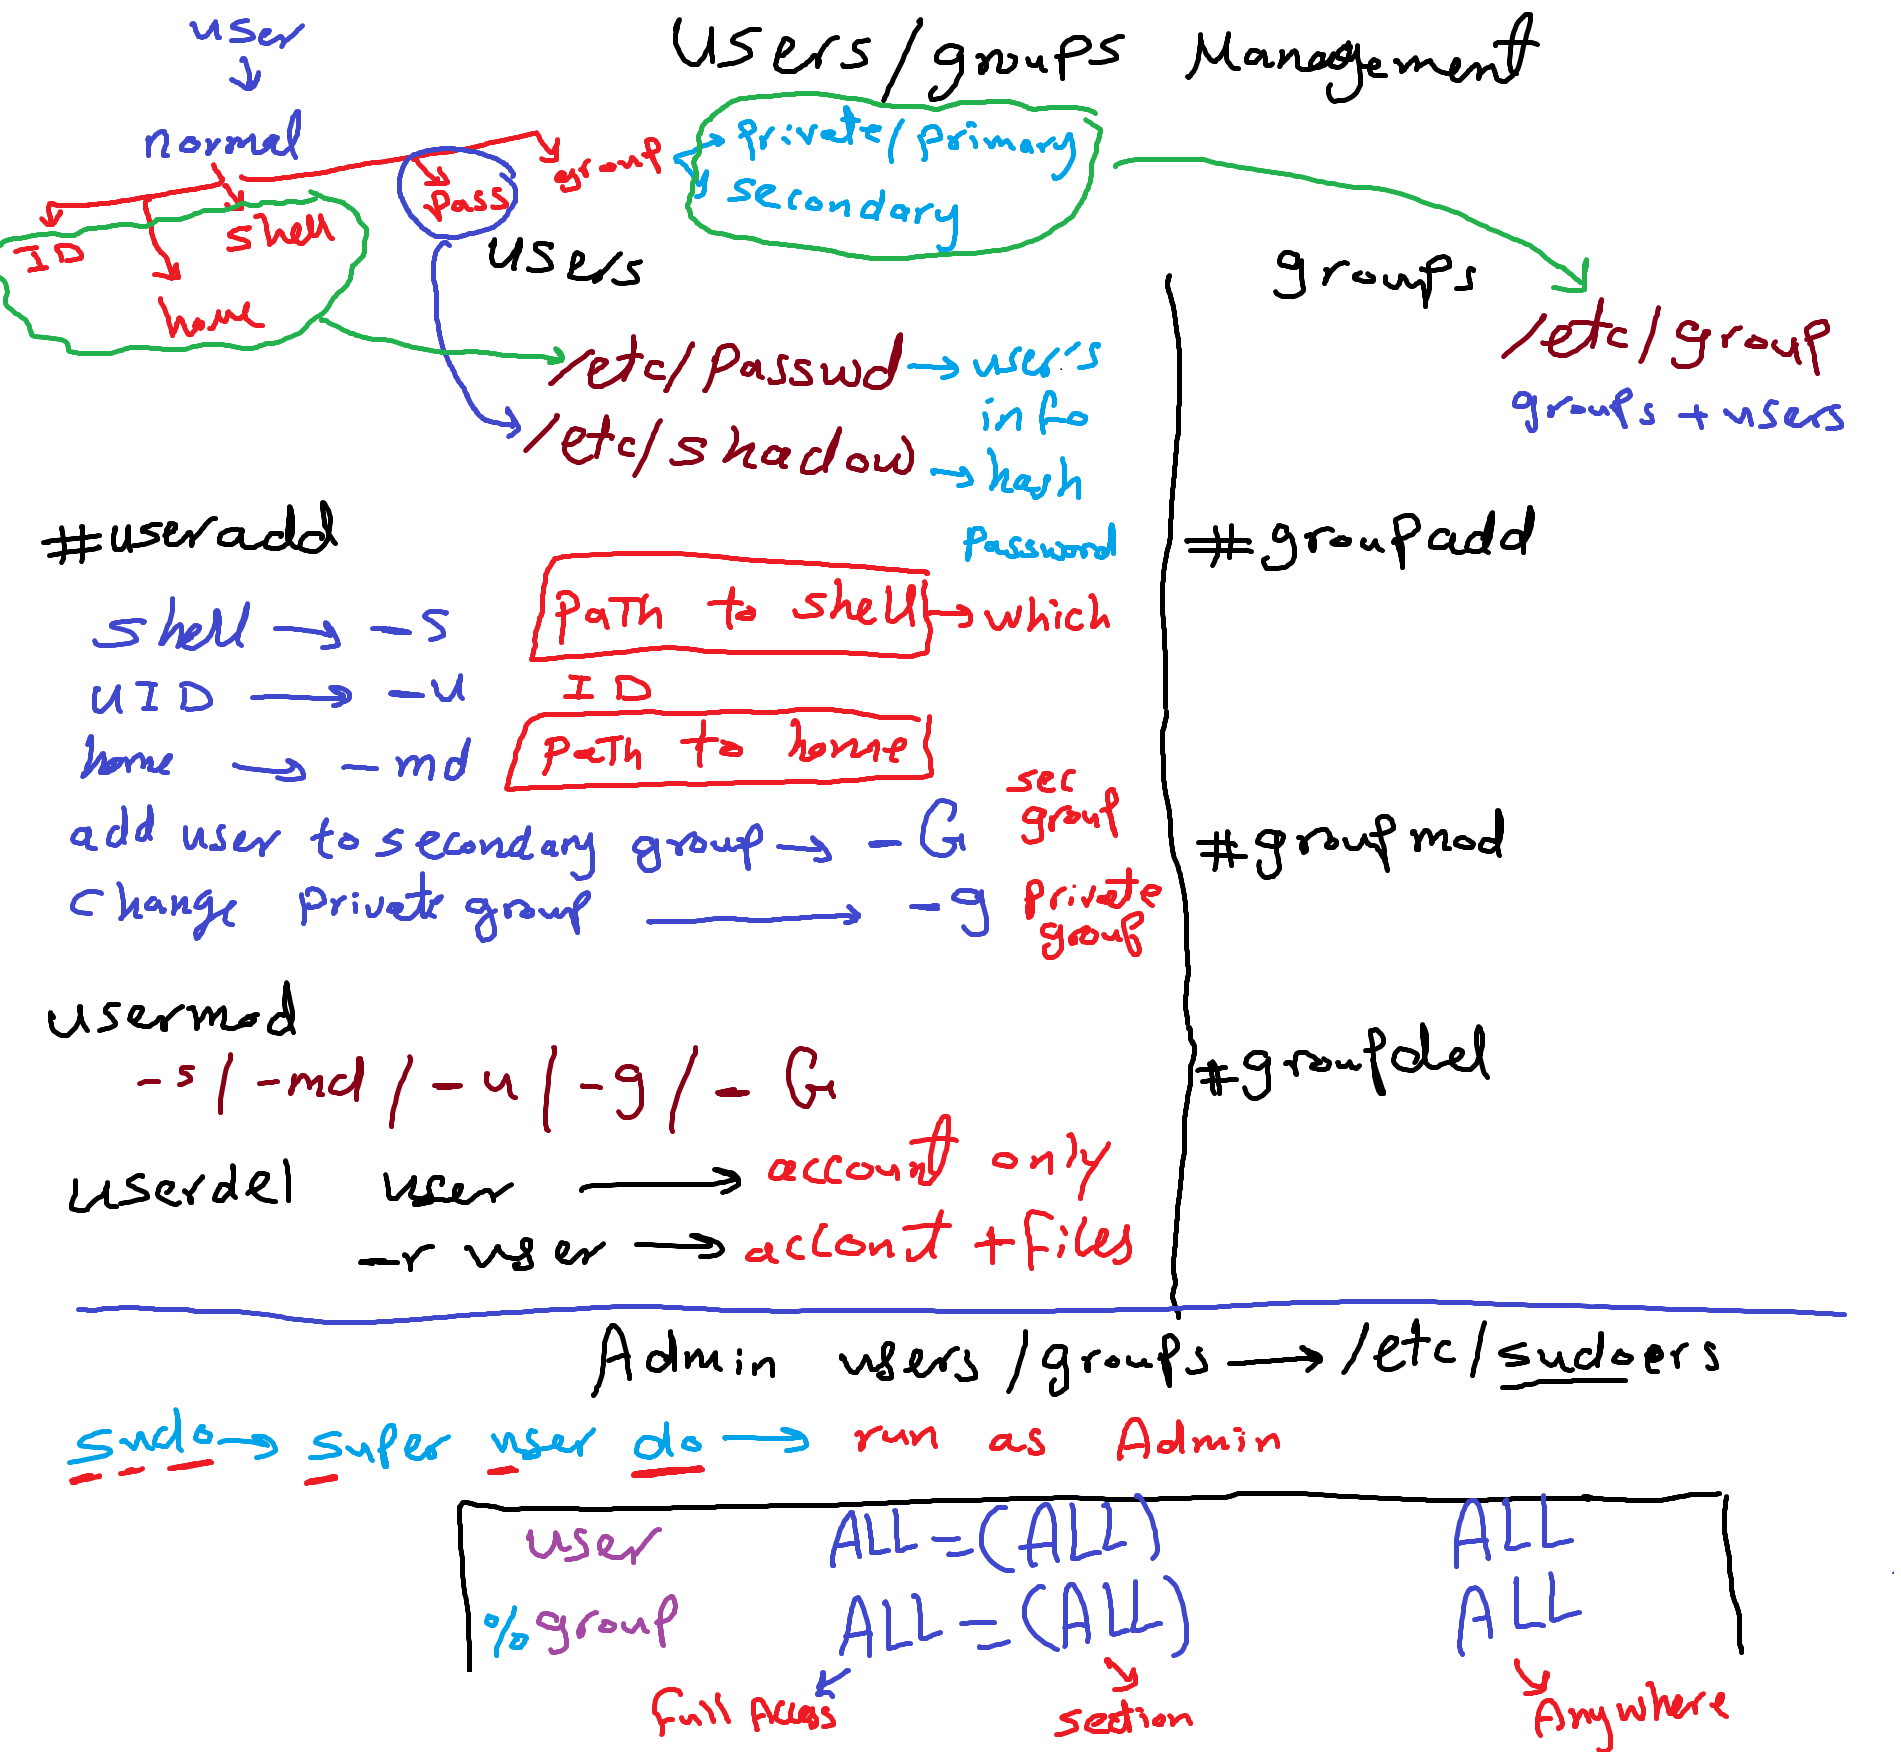 Users/groups Management
user
normal
ID
home
shell
Pass
group
private/primary
secondary
users
/etc/Passwd → user's
info
/etc/shadow → hash
Password
#useradd
shell → -s Path to shell → which
UID → -u ID
home → -md Path to home
add user to secondary group → -G sec
group
change Private group → -g private
group
usermod
-s / -md / -u / -g / - G
userdel user → account only
-r user → accont + Files
groups
/etc/group
groups + users
#groupadd
#groupmod
#groupdel
Admin users/groups → /etc/sudoers
sudo → super user do → run as Admin
user ALL=(ALL) ALL
%group ALL=(ALL) ALL
Full Access section Anywhere